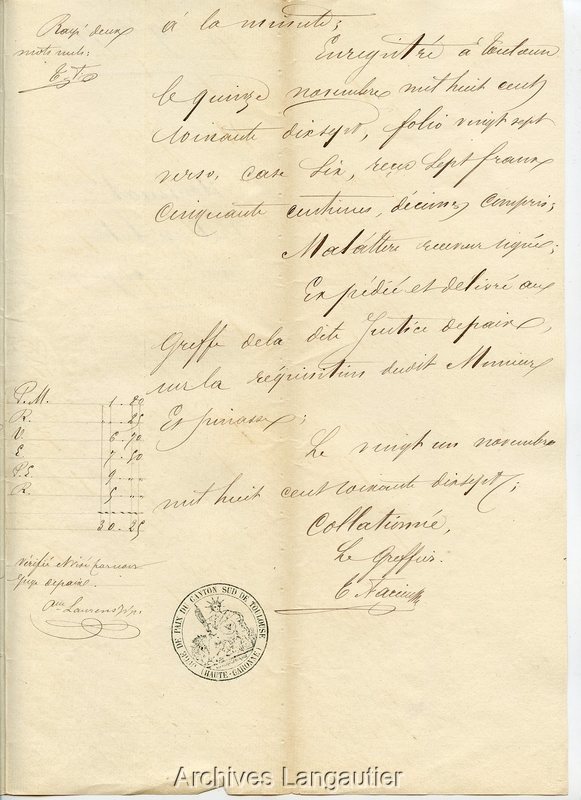 Rayé deux
mots nuls;
à la minute;
Enregistré à Toulouse
le quinze novembre mil huit cent
soixante dix sept, folio vingt sept
verso, case six, reçu sept francs
cinquante centimes, décimes compris;
receveur signé;
Expédiée et délivré aux
Greffe de la dite Justice de paix,
sur la réquisition dudit Monsieur
Espinasse;
Le vingt un novembre
mil huit cent soixante dix sept;
Collationnée,
Le Greffier.
P.M. 1.80
R. ".25
V. 6.70
E 7.50
P.E 9.""
R. 5.""
30.25
Vérifié et visé par nous
Juge de paix.
Laurens
JUGE DE PAIX DU CANTON SUD DE TOULOUSE
(HAUTE-GARONNE)
Archives Langautier